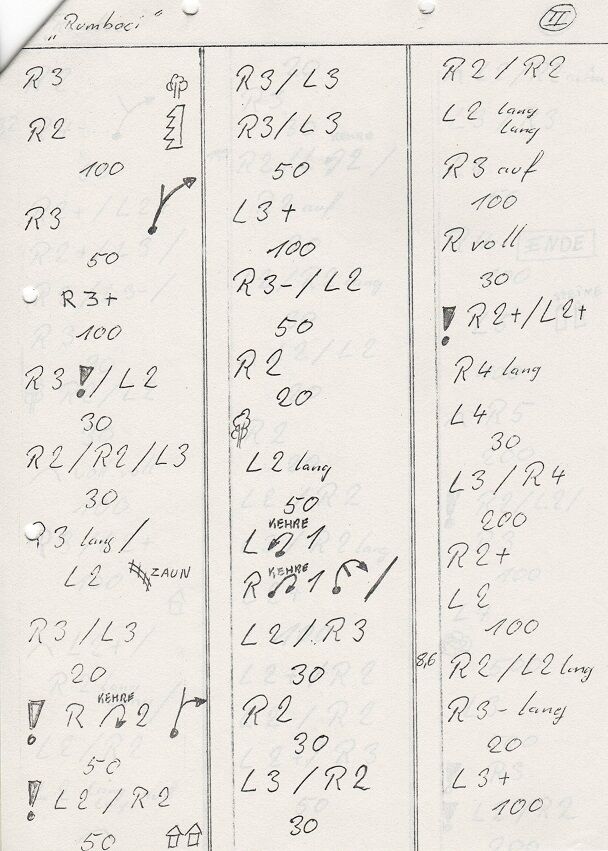 „Rumboci“
II
R3
R2
100
R3
50
R3+
100
R3 ! / L2
30
R2 / R2 / L3
30
R3 lang /
L2 ZAUN
R3 / L3
20
KEHRE
! R 2
50
! L2 / R2
50
R3 / L3
R3 / L3
50
L3+
100
R3- / L2
50
R2
20
L2 lang
50
KEHRE
L 1
KEHRE
R 1 /
L2 / R3
30
R2
30
L3 / R2
30
R2 / R2
L2 lang
lang
R3 auf
100
R voll
30
! R2+ / L2+
R4 lang
L4
30
L3 / R4
200
R2+
L2
100
8,6 R2 / L2 lang
R3- lang
20
L3+
100